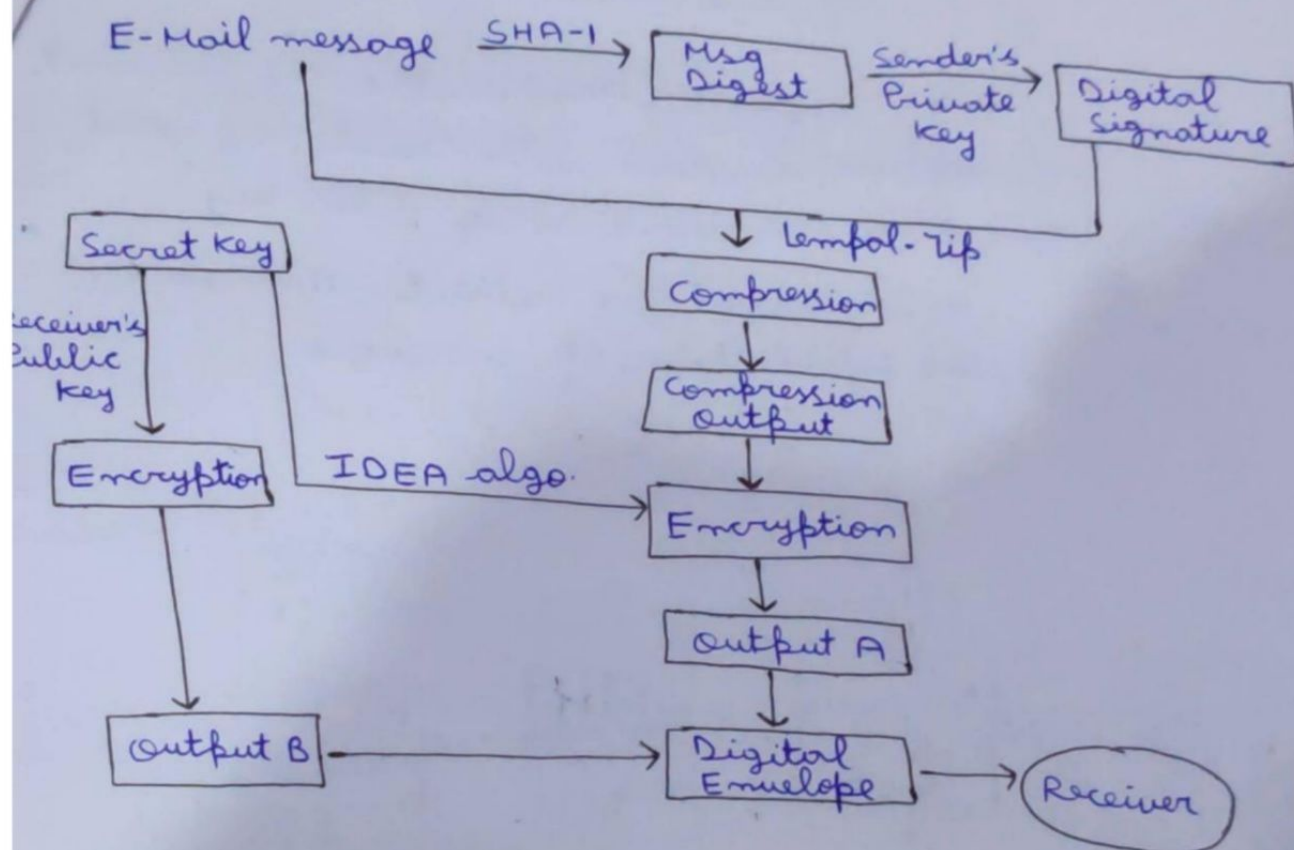 E-Mail message
SHA-1
Msg
Digest
Sender's
Private
Key
Digital
Signature
Lempal-Zip
Compression
Compression
Output
Secret Key
eceiver's
Public
Key
Encryption
IDEA algo.
Encryption
Output A
Output B
Digital
Envelope
Receiver